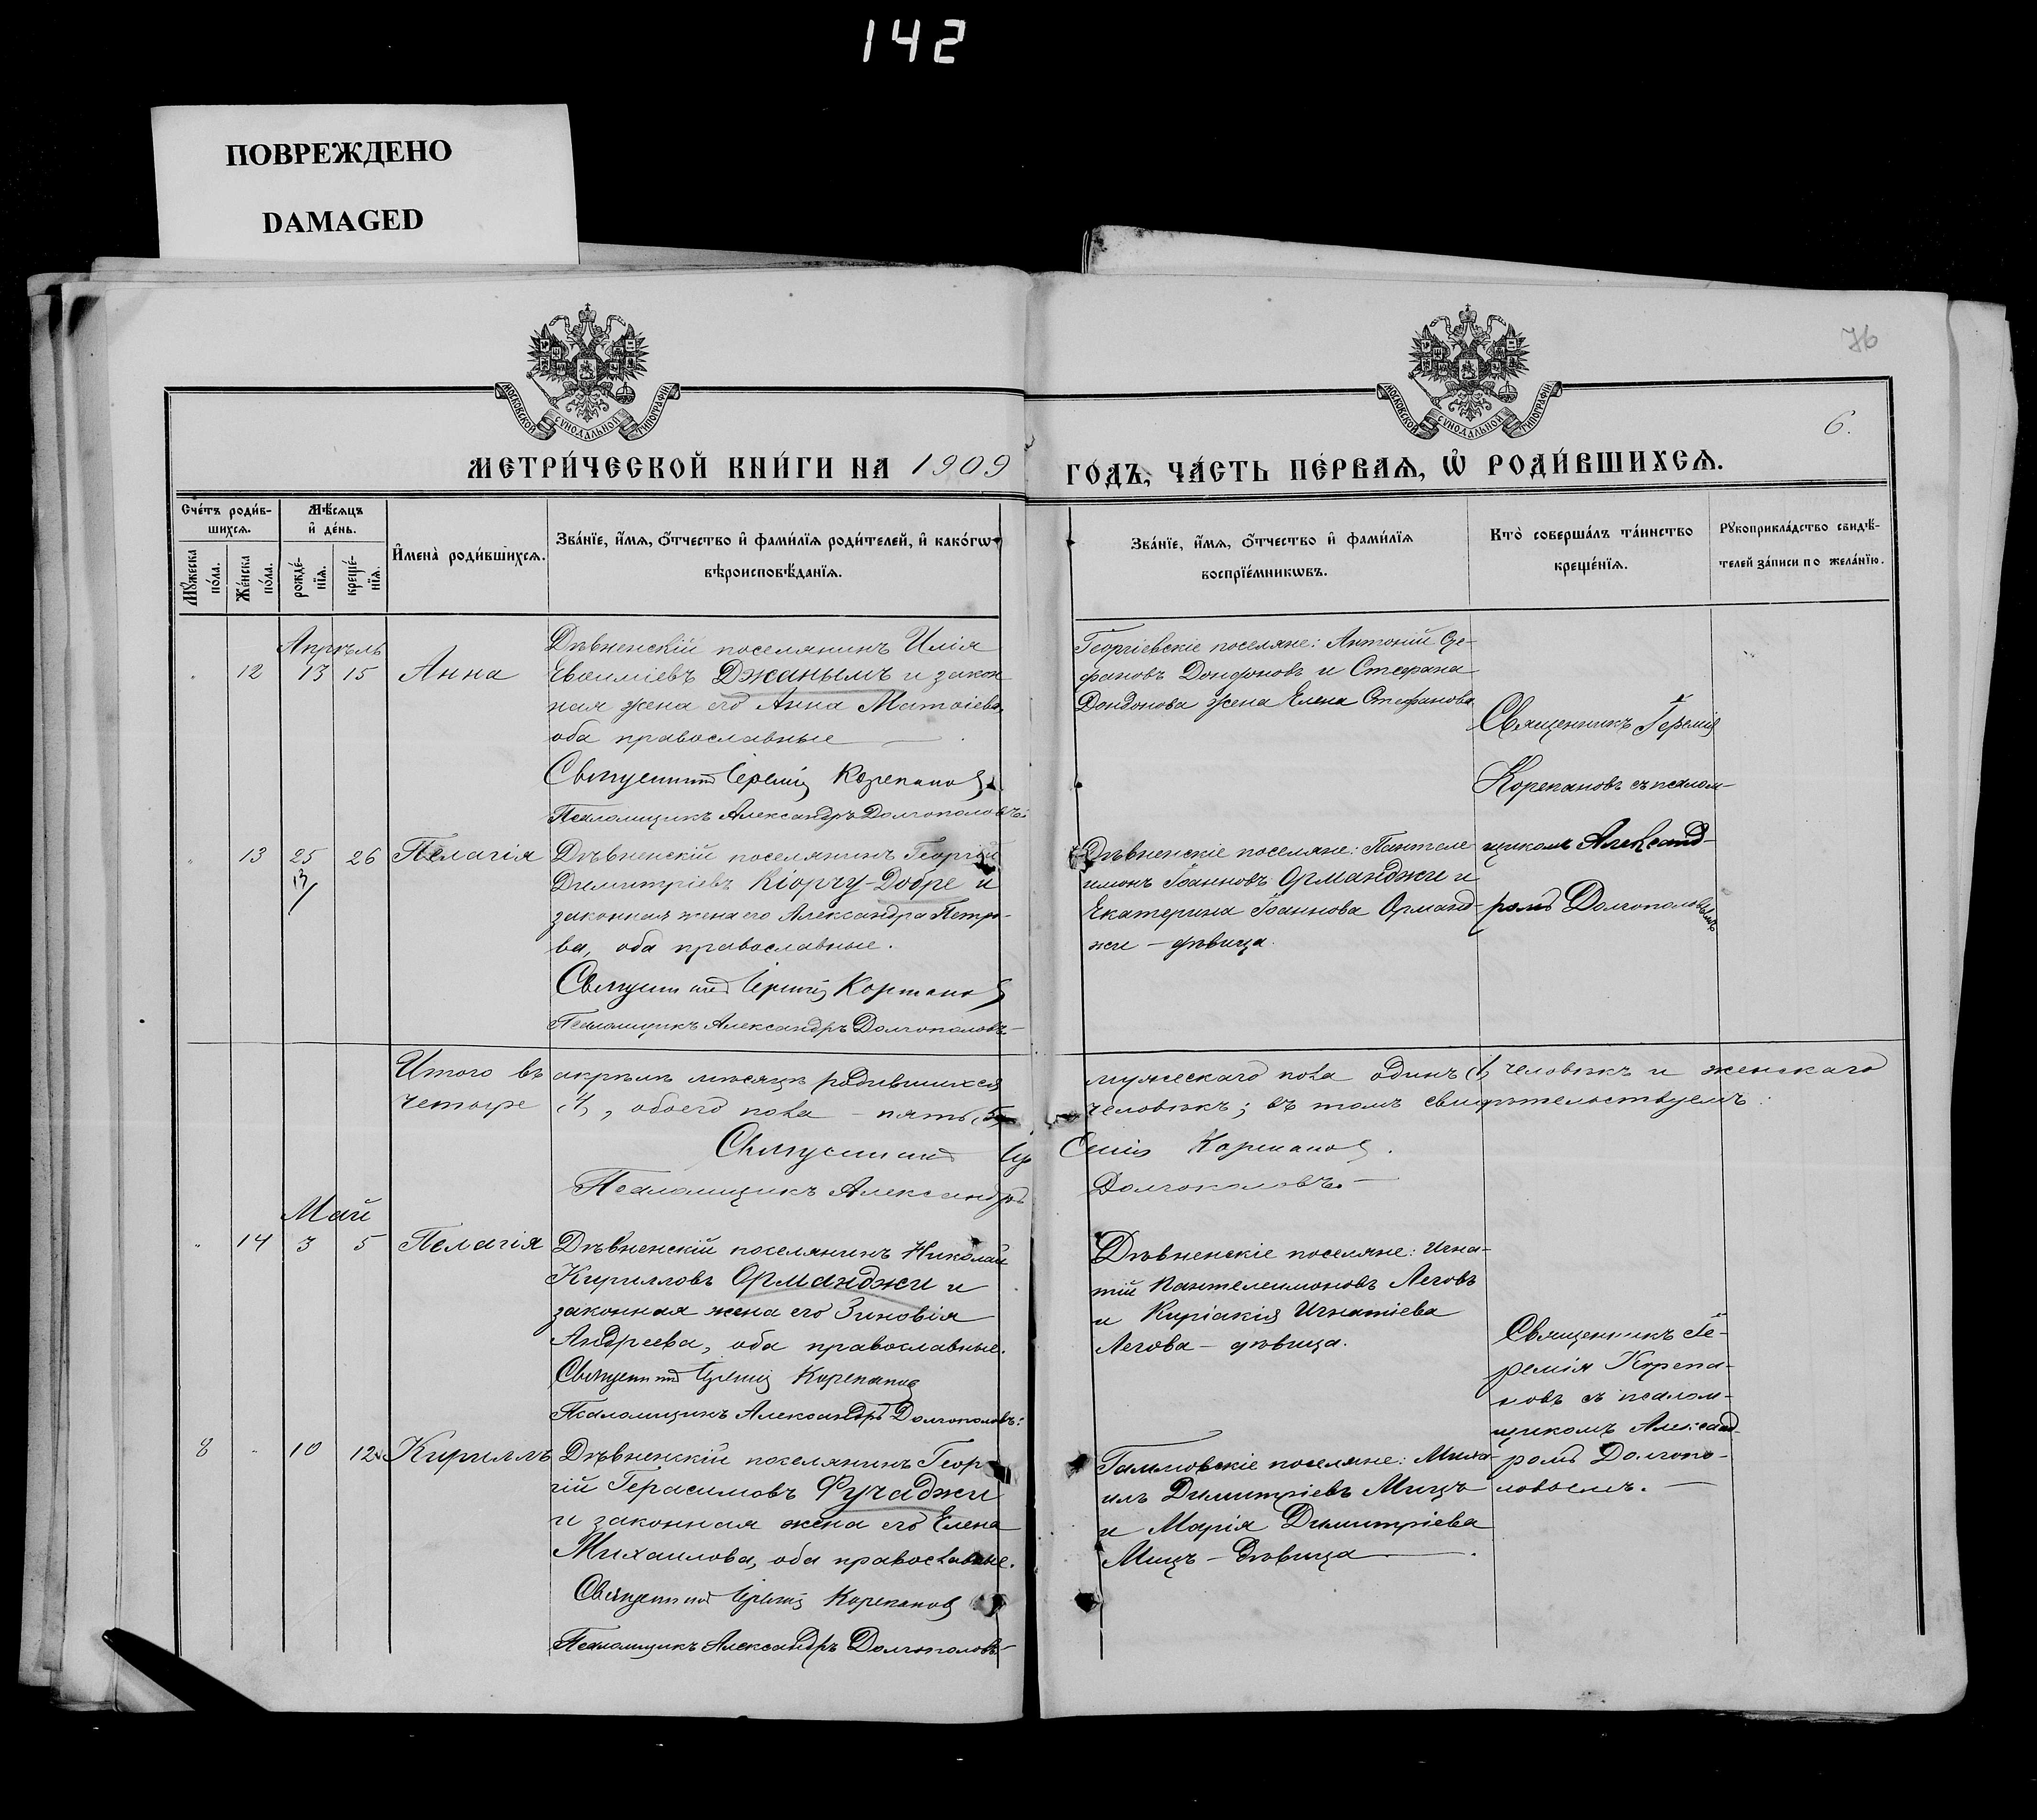 142
ПОВРЕЖДЕНО
DAMAGED
76
МОСКОВСКОЙ СѴНОДАЛЬНОЙ ТИПОГРАФІИ
МОСКОВСКОЙ СѴНОДАЛЬНОЙ ТИПОГРАФІИ
6.
МЕТРИ́ЧЕСКОЙ КНИ́ГИ НА 1909
ГО́ДЪ, ЧА́СТЬ ПЕ́РВАѦ, Ѡ҆ РОДИ́ВШИХСѦ.
Сче́тъ роди́в-
шихсѧ.
Мꙋ́жеска
по́ла.
Же́нска
по́ла.
Мѣ́сѧцъ
и҆ де́нь.
рожде́-
нїѧ.
креще́-
нїѧ.
И҆мена̀ роди́вшихсѧ.
Зва́нїе, и҆́мѧ, ѻ҆́тчество и҆ фами́лїѧ роди́телей, и҆ како́гѡ
вѣроисповѣ́данїѧ.
Зва́нїе, и҆́мѧ, ѻ҆́тчество и҆ фами́лїѧ
воспрїе́мникѡвъ.
Кто̀ соверша́лъ та́инство
креще́нїѧ.
Рꙋкоприкла́дство свидѣ́-
телей за́писи по жела́нїю.
Апрѣль
12 13 15 Анна
Дѣвненскій поселянинъ Илія
Евѳиміевъ Джанымъ и закон
ная жена его Анна Матѳіева
оба православные
Священникъ Іеремія Корепановъ
Псаломщикъ Александръ Долгополовъ:
Георгіевскіе поселяне: Антоній Сте-
фановъ Дондоновъ и Стефана
Дондонова жена Елена Стефанова
Священникъ Іеремія
Корепановъ съ псалом-
13 25 26 Пелагія
13/
Дѣвненскій поселянинъ Георгій
Димитріевъ Кіорчу-Добре и
законная жена его Александра Петро-
ва, оба православные.
Священникъ Іеремія Корепановъ
Псаломщикъ Александръ Долгополовъ
Дѣвненскіе поселяне: Пантеле
имонъ Іоанновъ Орманджи и
Екатерина Іоаннова Орманд-
жи – дѣвица.
щикомъ Александ-
ромъ Долгополовымъ
Итого въ апрѣлѣ мѣсяцѣ родившихся
мужескаго пола одинъ (1) человѣкъ и женскаго
четыре (4), обоего пола – пять (5)
человѣкъ; въ томъ свидѣтельствуемъ:
Священникъ Іеремія Корепановъ.
Псаломщикъ Александръ Долгополовъ.
Май
14 3 5 Пелагія
Дѣвненскій поселянинъ Николай
Кирилловъ Орманджи и
законная жена его Зиновія
Андреева, оба православные.
Священникъ Іеремія Корепановъ
Псаломщикъ Александръ Долгополовъ:
Дѣвненскіе поселяне: Игна-
тій Пантелеимоновъ Леговъ
и Киріакія Игнатіева
Легова – дѣвица.
Священникъ Іе-
ремія Корепа-
новъ съ псалом-
щикомъ Александ-
8 10 12 Кириллъ
Дѣвненскій поселянинъ Геор
гій Герасимовъ Фучаджи
и законная жена его Елена
Михаилова, оба православные.
Священникъ Іеремія Корепановъ
Псаломщикъ Александръ Долгополовъ
поселяне: Миха-
илъ Димитріевъ Мицъ
и Марія Димитріева
Мицъ – дѣвица
ромъ Долгопо-
ловымъ.